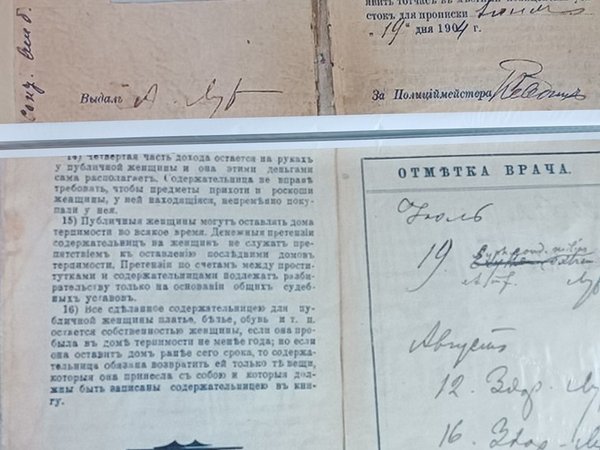 явить тотчасъ въ
стокъ для прописки
„19“ дня 1904 г.
Выдалъ
За Полиціймейстера
14) Четвертая часть дохода остается на рукахъ
у публичной женщины и она этими деньгами
сама располагаетъ. Содержательница не вправѣ
требовать, чтобы предметы прихоти и роскоши
женщины, у ней находящіяся, непремѣнно поку-
пали у нея.
15) Публичныя женщины могутъ оставлять дома
терпимости во всякое время. Денежныя претензіи
содержательницъ на женщинъ не служатъ пре-
пятствіемъ къ оставленію послѣдними домовъ
терпимости. Претензіи по счетамъ между прости-
тутками и содержательницами подлежатъ разби-
рательству только на основаніи общихъ судеб-
ныхъ уставовъ.
16) Все сдѣланное содержательницею для пу-
бличной женщины платье, бѣлье, обувь и т. п.
остается собственностью женщины, если она про-
была въ домѣ терпимости не менѣе года; но если
она оставитъ домъ ранѣе сего срока, то содержа-
тельница обязана возвратить ей только тѣ вещи,
которыя она принесла съ собою и которыя долж-
ны быть записаны содержательницею въ кни-
гу.
ОТМѢТКА ВРАЧА.
Іюль
19.
Августъ
12. Здор.
16. Здор.